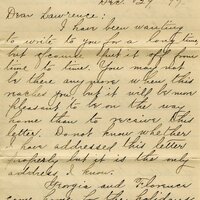 Dec. 29
Dear Lawrence:
I have been waiting
to write to you for a long time
but of course put it off from
time to time. You may not
be there any more when this
reaches you but it will be more
pleasant to be on the way
home than to receive this
letter. Do not know whether
I have addressed this letter
properly but it is the only
address I know.
Georgia and Florence
came home for the holidays